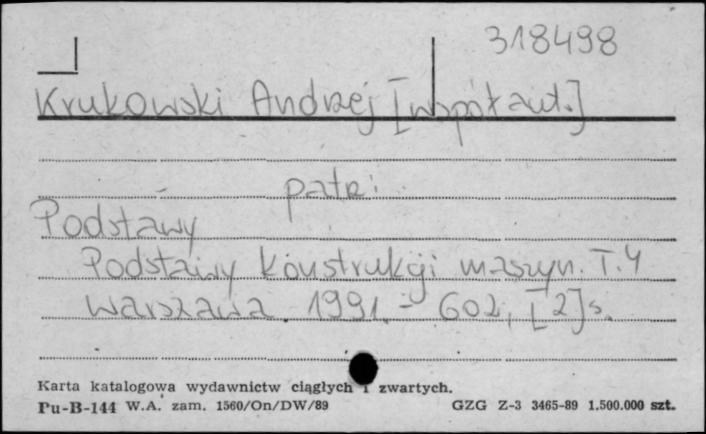 318498
Krukowski Andrzej [współaut.]
patrz:
Podstawy
Podstawy konstrukcji maszyn. T. 4
Warszawa. 1991. - 602, [2] s.
Karta katalogowa wydawnictw ciągłych i zwartych.
Pu-B-144 W.A. zam. 1560/On/DW/89 GZG Z-3 3465-89 1.500.000 szt.